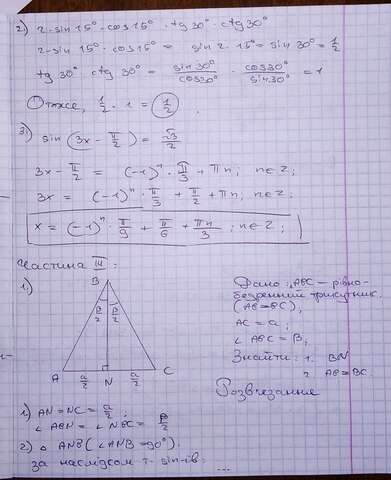 2) 2·sin15°·cos15°·tg30°·ctg30°
2·sin15°·cos15° = sin2·15° = sin30° = 1/2
tg30°·ctg30° = sin30°/cos30° · cos30°/sin30° = 1
Отже, 1/2 · 1 = 1/2 .
3) sin(3x - π/2) = √3/2
3x - π/2 = (-1)ⁿ · π/3 + πn, n∈Z;
3x = (-1)ⁿ · π/3 + π/2 + πn, n∈Z;
x = (-1)ⁿ · π/9 + π/6 + πn/3 ; n∈Z;
Частина III:
1)
B
β/2 β/2
A a/2 N a/2 C
Дано: △ABC – рівно-
бедренний трикутник.
(AB=BC),
AC = a;
∠ABC = β,
Знайти: 1. BN
2 AB=BC
Розв'язання
1) AN = NC = a/2 ;
∠ABN = ∠NBC = β/2
2) △ ANB (∠ANB = 90°).
За наслідком т. sin-ів: ...